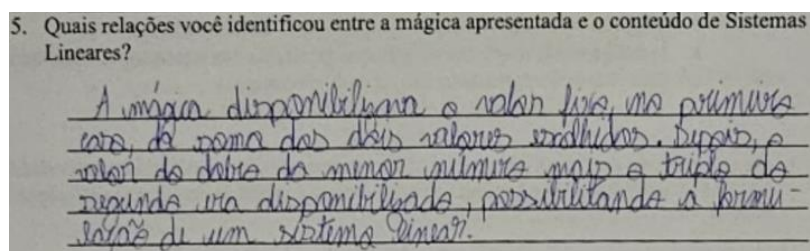 5. Quais relações você identificou entre a mágica apresentada e o conteúdo de Sistemas
Lineares?
A mágica disponibilizava o valor fixo, no primeiro
caso, da soma dos dois valores escolhidos. Depois, o
valor do dobro do menor número mais o triplo do
segundo era disponibilizado, possibilitando a formu-
lação de um sistema linear.